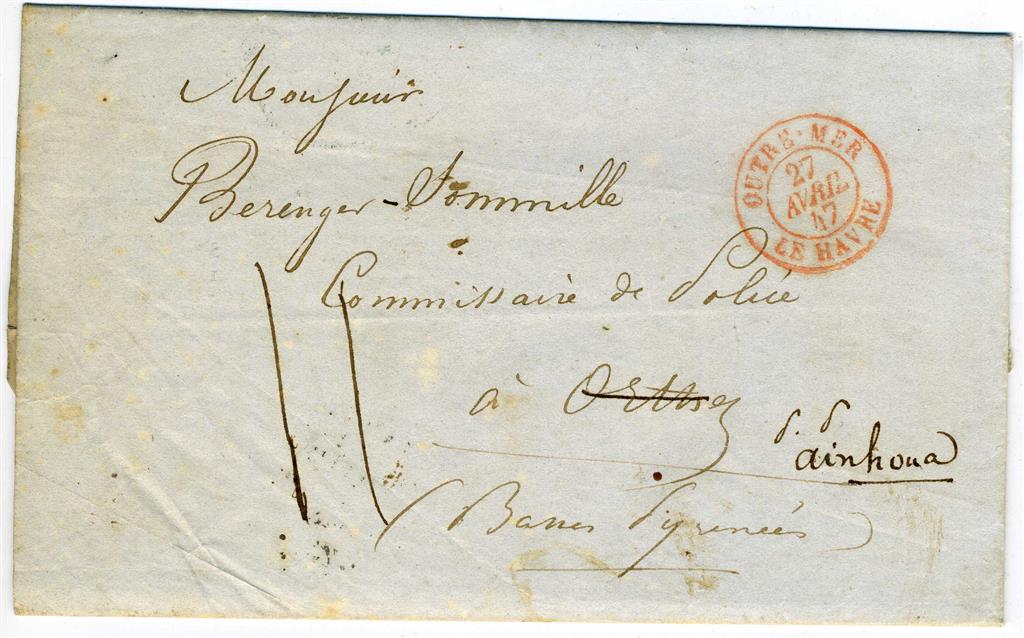 Monsieur
OUTRE-MER
27
AVRIL
47
LE HAVRE
Berenger-Tommille
Commissaire de Police
à Orthez
ainhoua
(Basses Pyrenées)
11